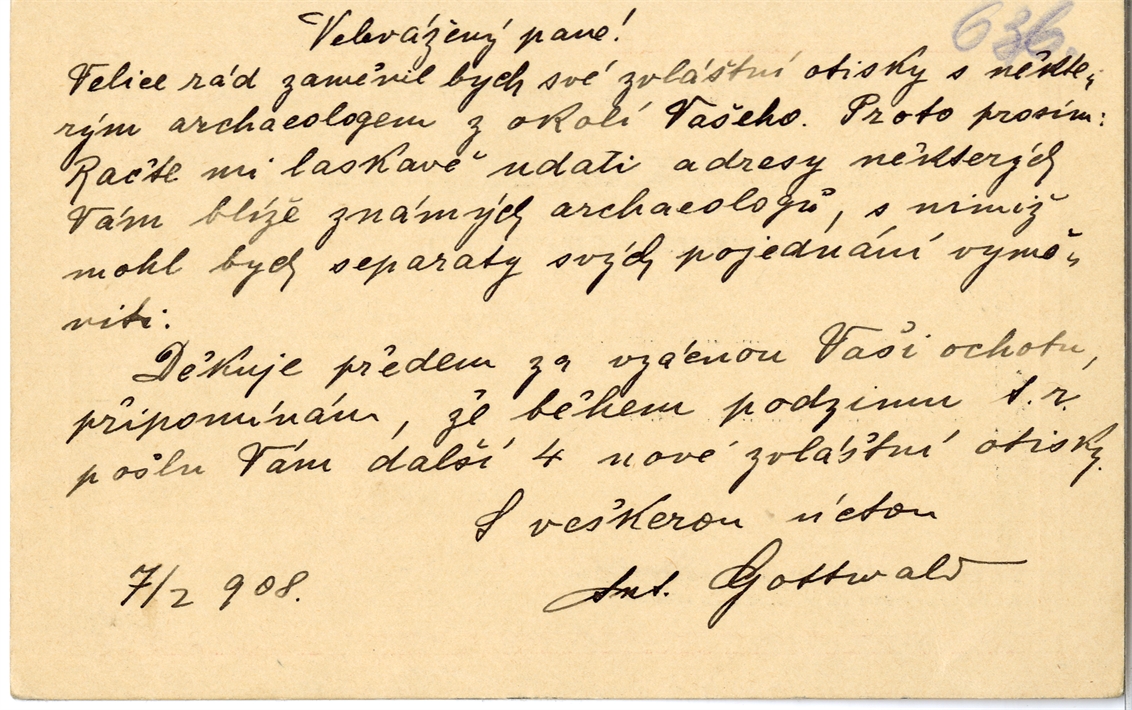 636.
Velevážený pane!
Velice rád zaměnil bych své zvláštní otisky s někte„
rým archaeologem z okolí Vašeho. Proto prosím:
Račte mi laskavě udati adresy některých
Vám blíže známých archaeologů, s nimiž
mohl bych separaty svých pojednání vymě„
niti.
Děkuje předem za vzácnou Vaši ochotu,
připomínám, že během podzimu t. r.
pošlu Vám další 4 nové zvláštní otisky.
S veškerou úctou
7/2 908. Ant. Gottwald